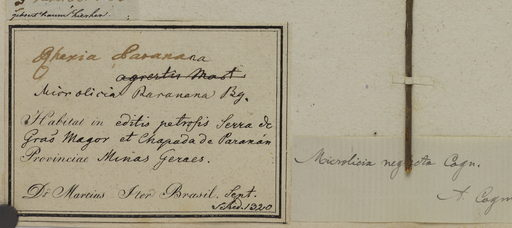 Rhexia Paranana
agrestis Mart
Microlicia Paranana Bg.
Habitat in editis petrosis Serra de
Grão Magor et Chapada de Paranan
Provinciae Minas Geraes.
Dr Martius Iter Brasil. Sept.
Sched. 1320
Microlicia neglecta Cogn.
A. Cogn